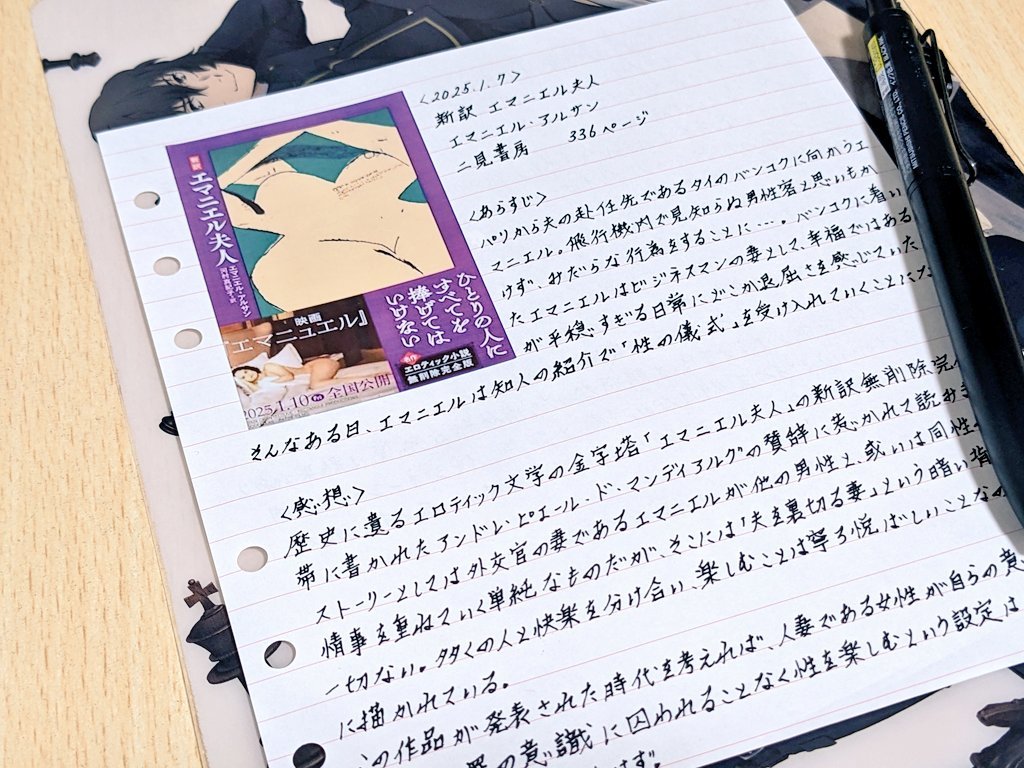 <2025.1.7>
新訳 エマニエル夫人
エマニエル・アルサン
二見書房 336ページ
<あらすじ>
パリから夫の赴任先であるタイのバンコクに向かうエ
マニエル。飛行機内で見知らぬ男性客と思いもか
けず、みだらな行為をすることに…。バンコクに着い
たエマニエルはビジネスマンの妻として、幸福ではある
が平穏すぎる日常にどこか退屈さを感じていた
そんなある日、エマニエルは知人の紹介で「性の儀式」を受け入れていくことにな
<感想>
歴史に遺るエロティック文学の金字塔「エマニエル夫人」の新訳無削除完
帯に書かれたアンドレ・ピエール・ド・マンディアルグの賛辞に惹かれて読み
ストーリーとしては外交官の妻であるエマニエルが他の男性と、或いは同性
情事を重ねていく単純なものだが、そこには「夫を裏切る妻」という暗い背
一切ない。多くの人と快楽を分け合い、楽しむことは寧ろ悦ばしいことなの
に描かれている。
の作品が発表された時代を考えれば、人妻である女性が自らの意
の意識に囚われることなく性を楽しむという設定は
はず。
新訳
エマニエル夫人
エマニエル・アルサン
河村真紀子 訳
ひとりの人に
すべてを
捧げては
いけない
名作
エロティック小説
無削除完全版
映画
『エマニュエル』
2025.1.10 全国公開